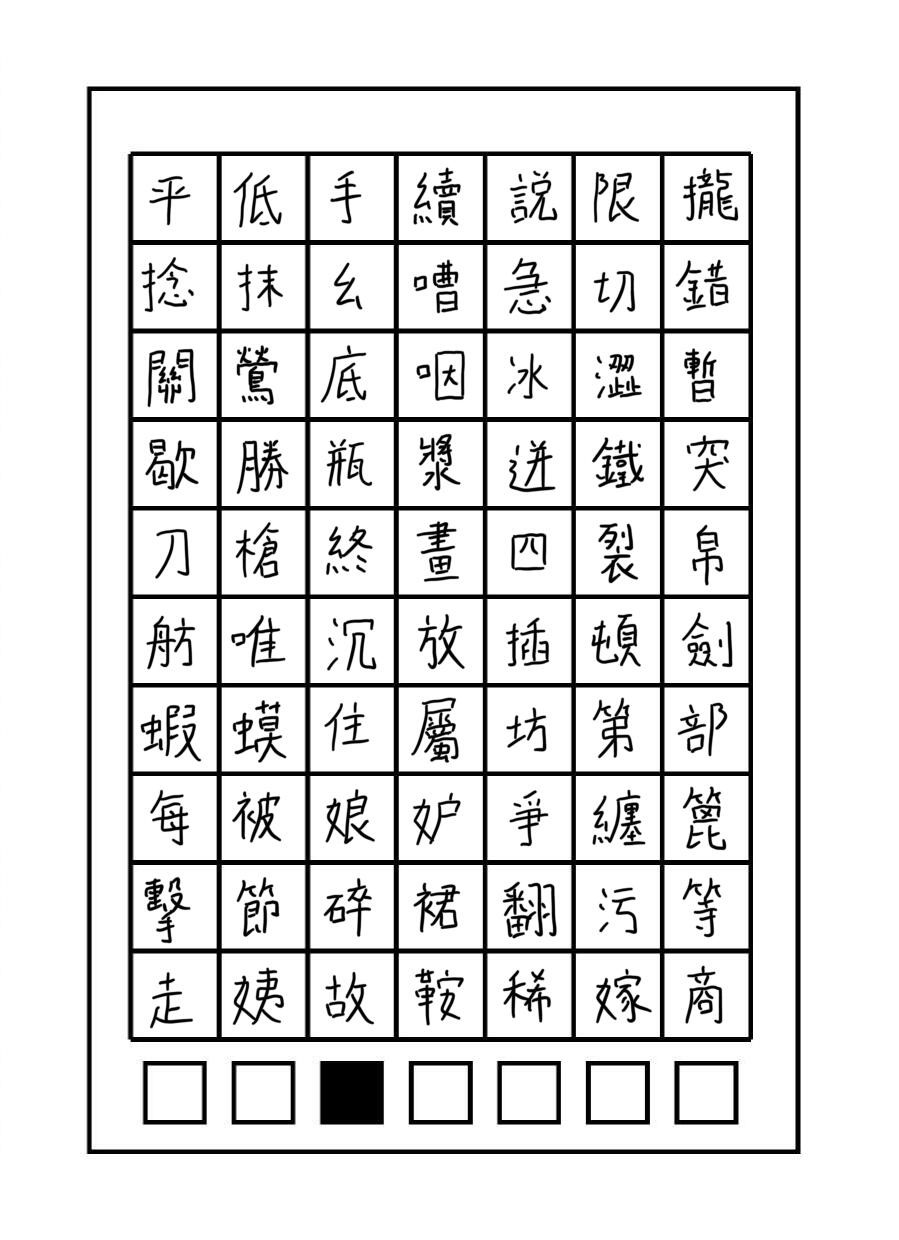 平低手續説限攏
捻抹幺嘈急切錯
關鶯底咽冰澀暫
歇勝瓶漿迸鐵突
刀槍終畫四裂帛
舫唯沉放插頓劍
蝦蟆住屬坊第部
每被娘妒爭纏篦
擊節碎裙翻污等
走姨故鞍稀嫁商